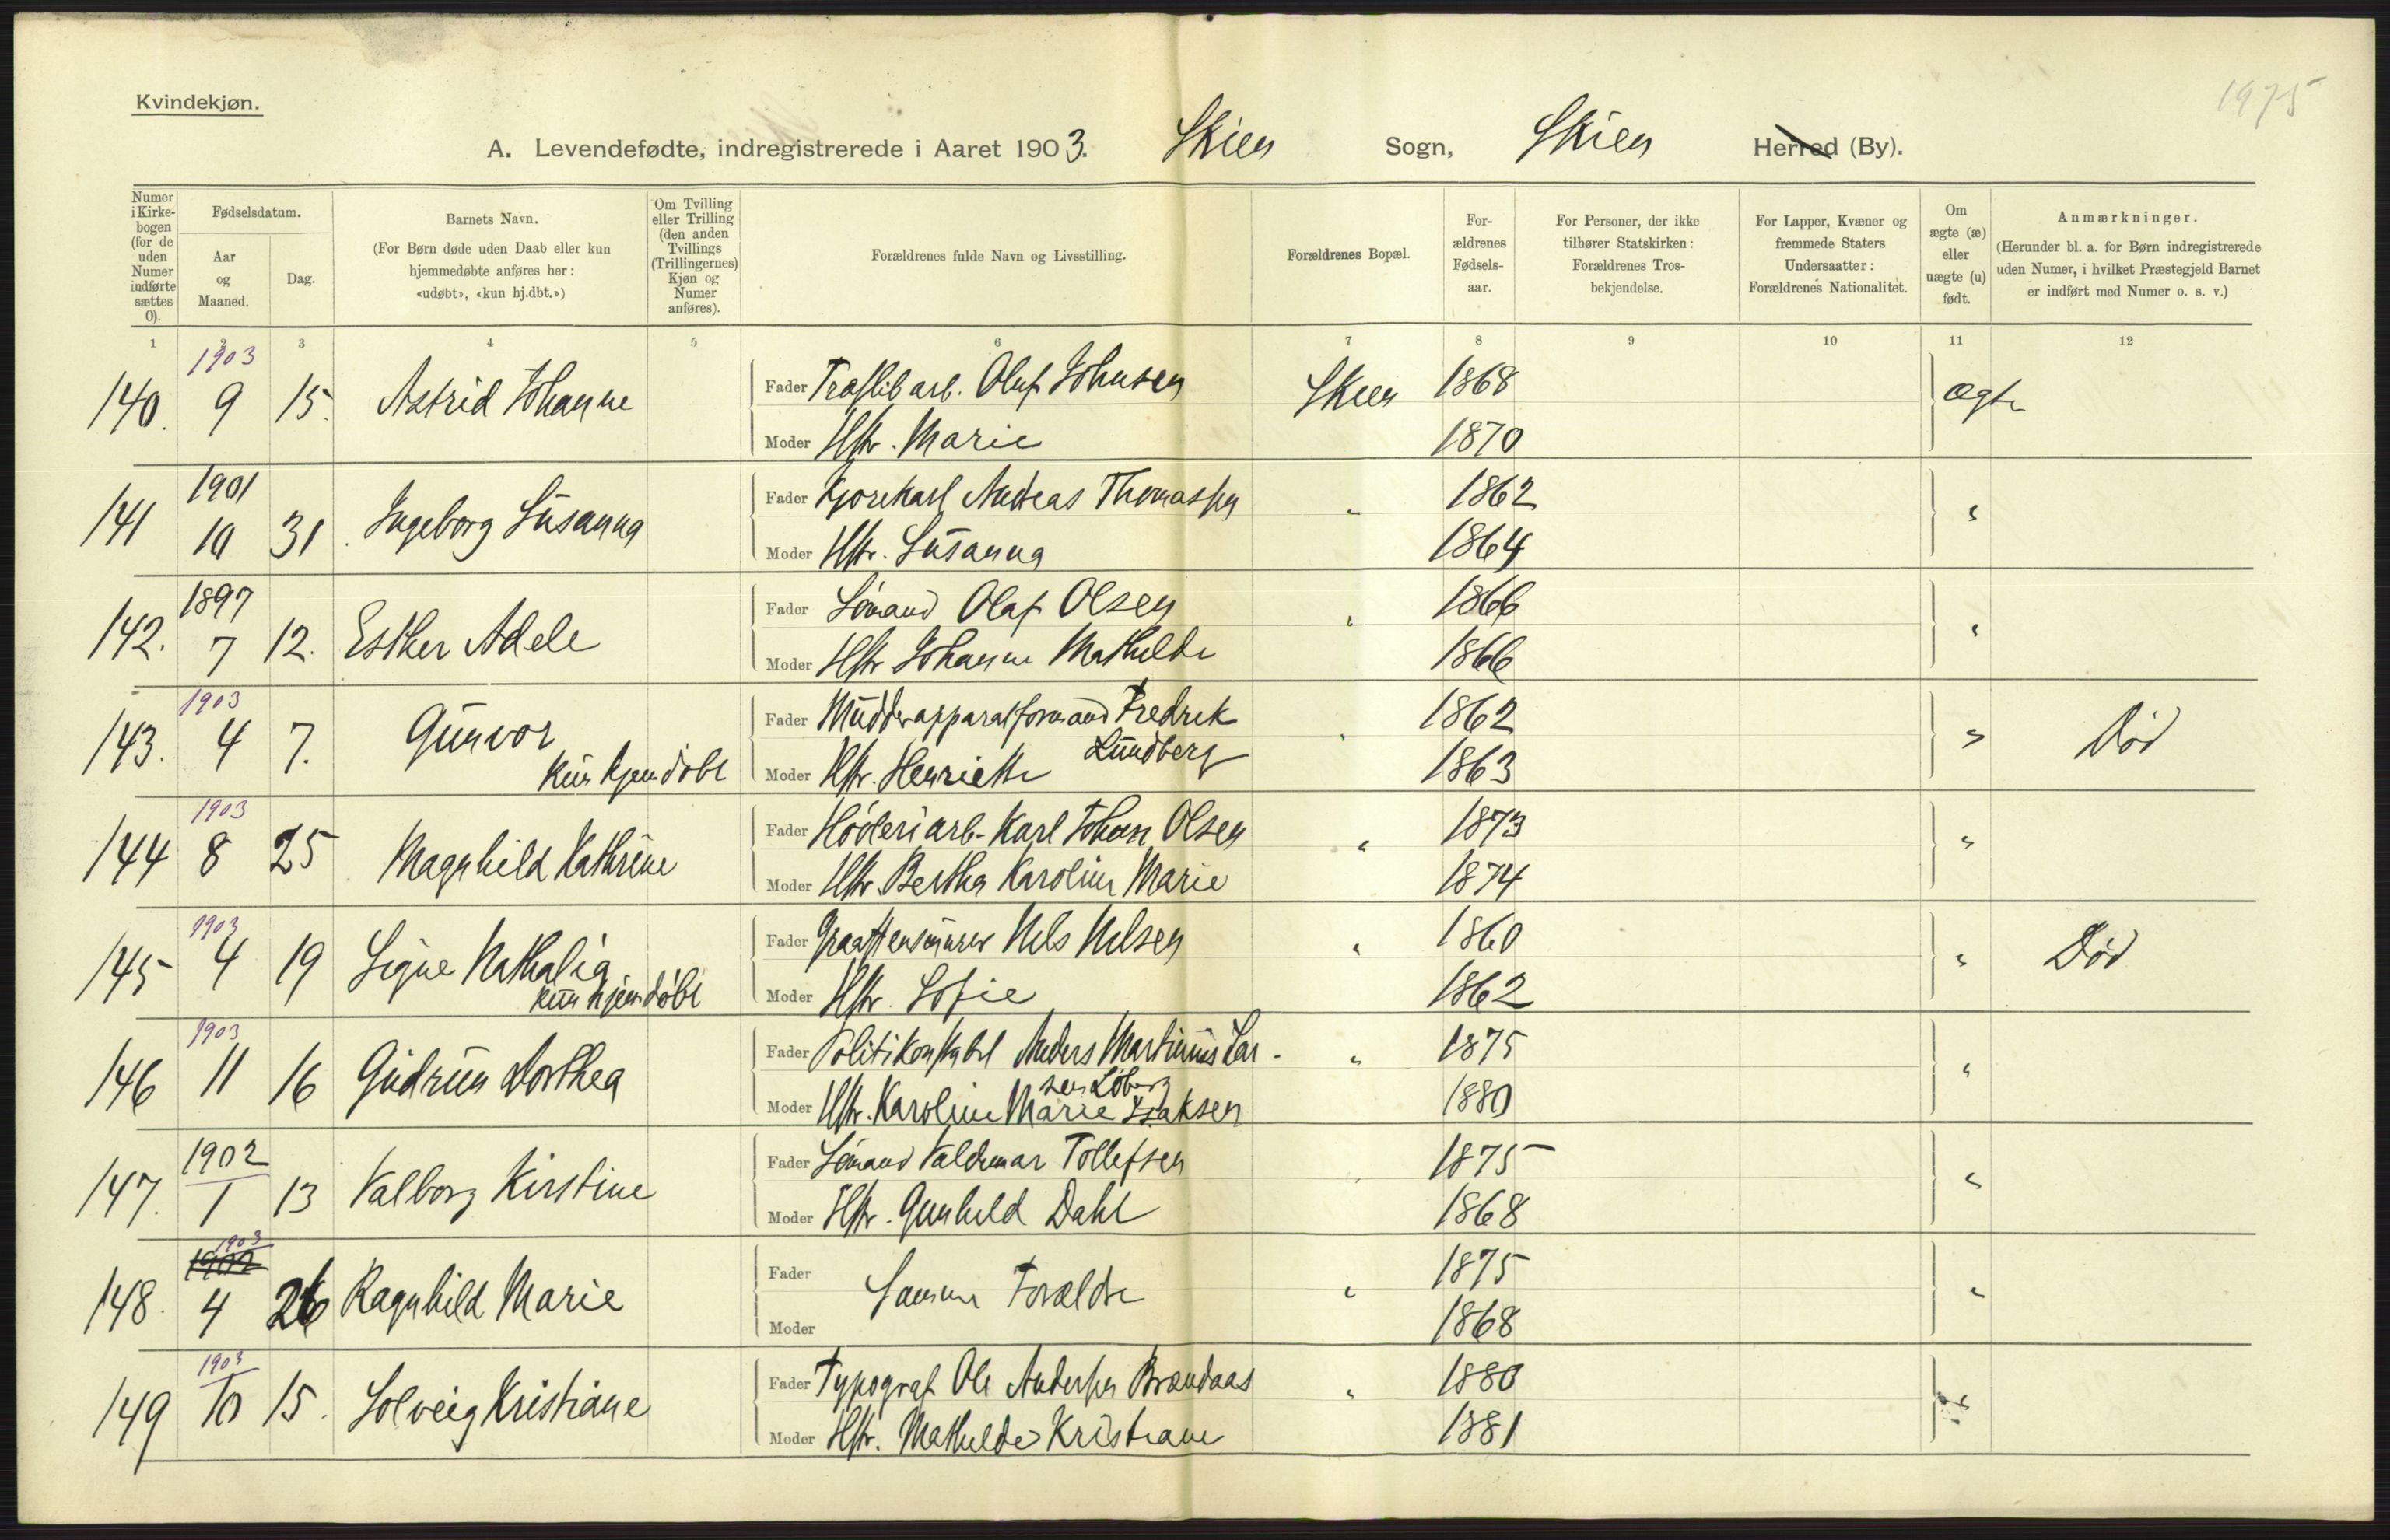 1975
Kvindekjøn.
A. Levendefødte, indregistrerede i Aaret 1903. Skien Sogn, Skien Herred (By).
Numer i Kirkebogen (for de uden Numer indførte sættes 0).
Fødselsdatum.
Aar og Maaned.
Dag.
Barnets Navn.
(For Børn døde uden Daab eller kun hjemmedøbte anføres her: «udøbt», «kun hj.dbt.»)
Om Tvilling eller Trilling (den anden Tvillings (Trillingernes) Kjøn og Numer anføres).
Forældrenes fulde Navn og Livsstilling.
Forældrenes Bopæl.
Forældrenes Fødselsaar.
For Personer, der ikke tilhører Statskirken: Forældrenes Trosbekjendelse.
For Lapper, Kvæner og fremmede Staters Undersaatter: Forældrenes Nationalitet.
Om ægte (æ) eller uægte (u) født.
Anmærkninger.
(Herunder bl. a. for Børn indregistrerede uden Numer, i hvilket Præstegjeld Barnet er indført med Numer o. s. v.)
1 2 3 4 5 6 7 8 9 10 11 12
1903
140. 9 15. Astrid Johanne Fader Træslib arb. Oluf Johnsen Skien 1868 ægte
Moder Hstr. Marie 1870
1901
141 10 31. Ingeborg Susanna Fader Kjørekarl Andreas Thomassen " 1862 "
Moder Hstr. Susanna 1864
1897
142. 7 12. Esther Adele Fader Sømand Olaf Olsen " 1866 "
Moder Hstr Johanne Mathilde 1866
1903
143. 4 7. Gunvor Fader Mudderapparatformand Fredrik 1862 " Død
Lundberg
kun hjemdøbt Moder Hstr. Henriette 1863
1903
144 8 25 Magnhild Kathrine Fader Høvleriarb. Karl Johan Olsen " 1873 "
Moder Hstr. Bertha Karoline Marie 1874
1903
145 4 19 Signe Nathalia Fader Graastensmurer Nils Nilsen " 1860 " Død
kun hjemdøbt Moder Hstr. Sofie 1862
1903
146 11 16 Gudrun Dorthea Fader Politikonstabel Anders Martinius Lar- " 1875 "
sen Løberg
Moder Hstr. Karoline Marie Isaksen 1880
1902
147. 1 13 Valborg Kirstine Fader Sømand Valdemar Tollefsen 1875 "
Moder Hstr. Gunhild Dahl 1868
1903
1902
148. 4 26 Ragnhild Marie Fader Samme Forældre " 1875 "
Moder 1868
1903
149 10 15. Solveig Kristiane Fader Typograf Ole Andersen Brændaas " 1880 "
Moder Hstr. Mathilde Kristiane 1881